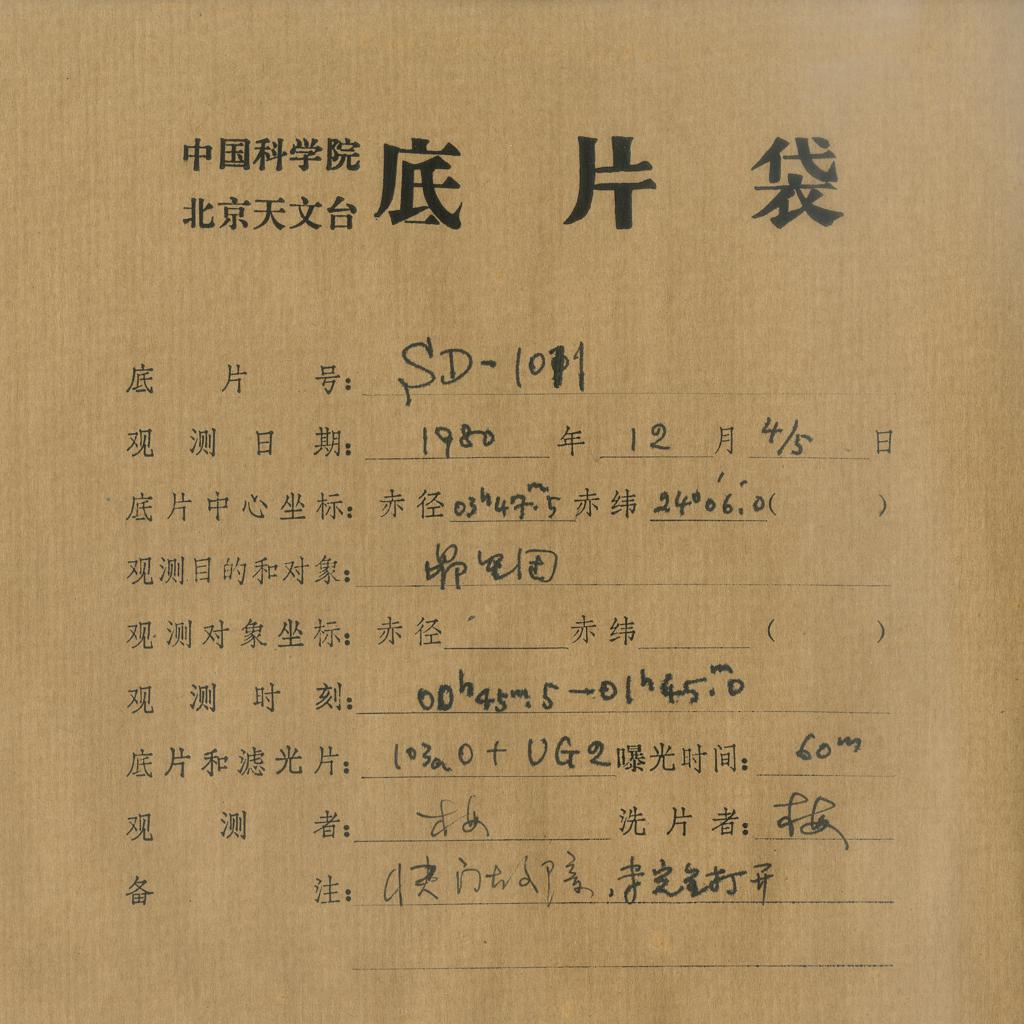 中国科学院
北京天文台
底片袋
底片号: SD-1011
观测日期: 1980年12月4/5日
底片中心坐标: 赤径03h47m.5赤纬24°06′.0( )
观测目的和对象: 昴星团
观测对象坐标: 赤径 赤纬 ( )
观测时刻: 00h45m.5—01h45m.0
底片和滤光片: 103aO+UG2曝光时间: 60m
观测者: 梅 洗片者: 梅
备注: 快门故障,未完全打开